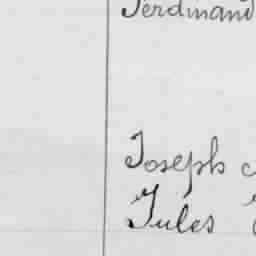 Ferdinand
Joseph
Jules